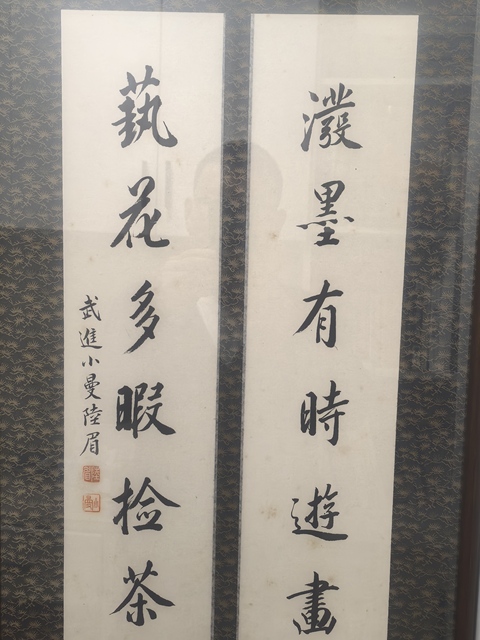 潑墨有時遊畫
蓺花多暇捡茶
武進小曼陸眉